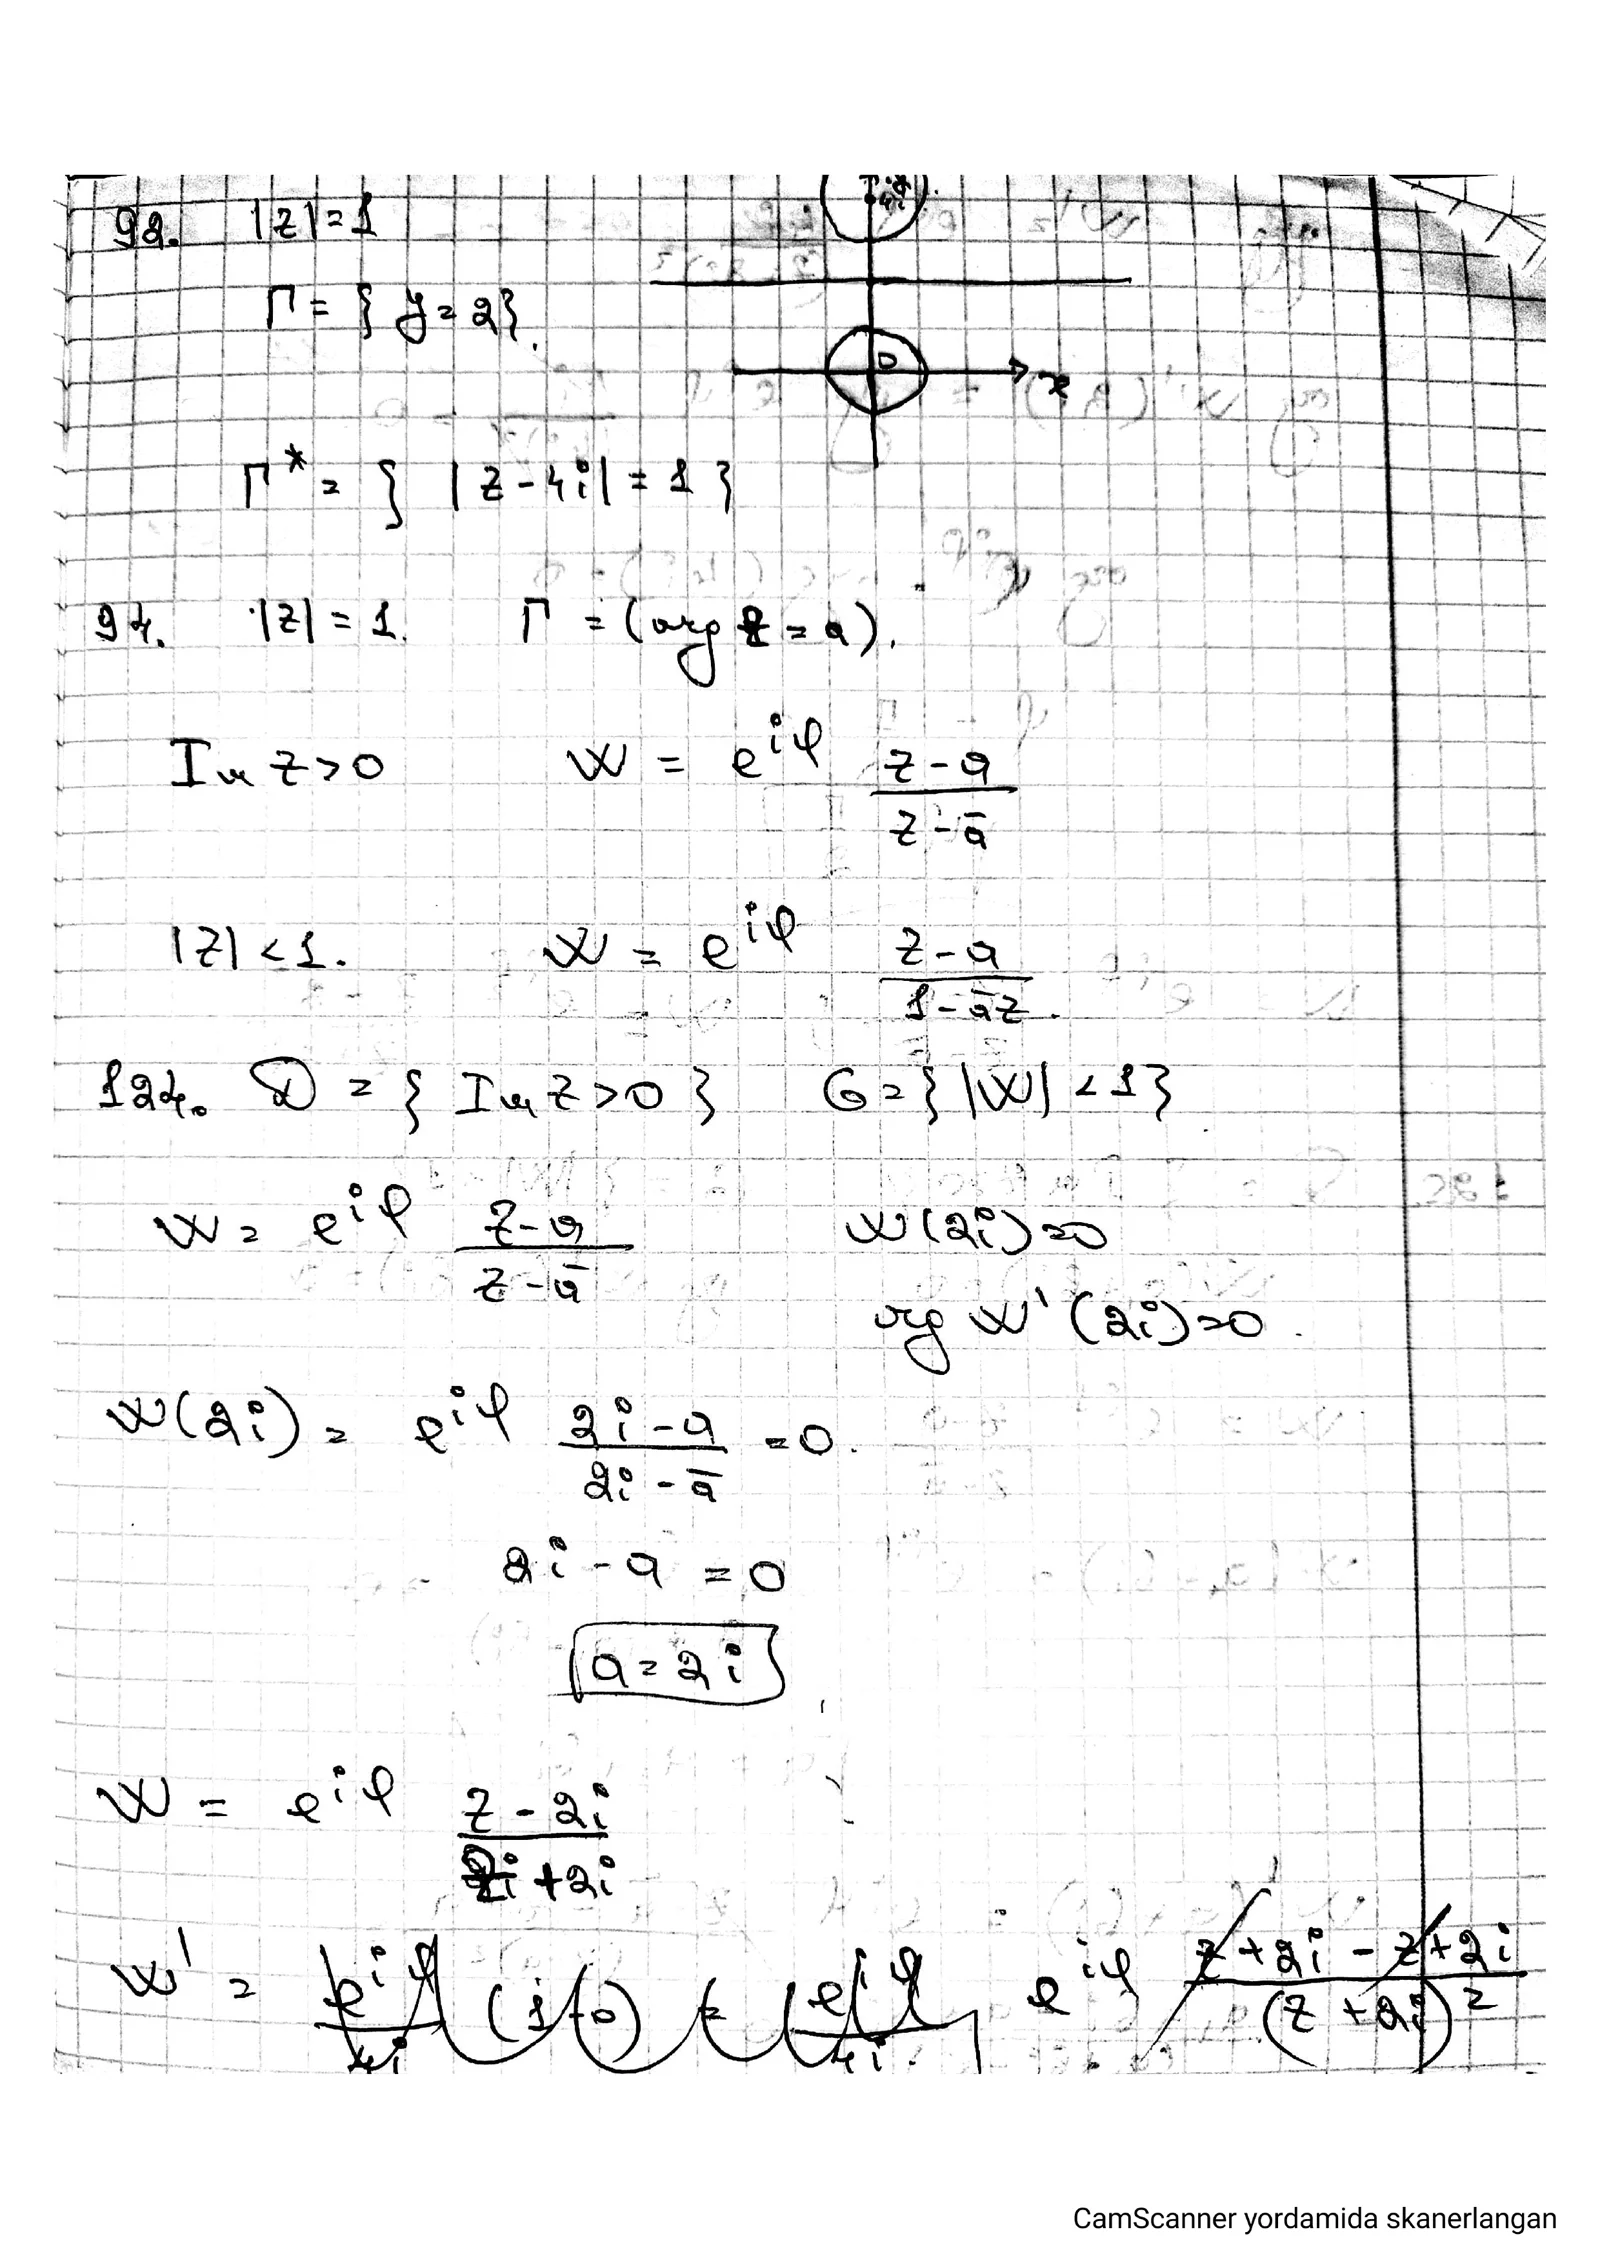 98. |z|=1
Γ = { y = 2 }.
4i
D
x
Γ* = { |z-4i| = 1 }
94. |z| = 1. Γ = (arg z = a).
Im z > 0 W = e^{iφ} \frac{z-a}{z-\bar{a}}
|z| < 1. W = e^{iφ} \frac{z-a}{1-\bar{a}z}.
124. D = { Im z > 0 } G = { |W| < 1 }
W = e^{iφ} \frac{z-a}{z-\bar{a}} W(2i) = 0
arg W'(2i) = 0.
W(2i) = e^{iφ} \frac{2i-a}{2i-\bar{a}} = 0.
2i - a = 0
a = 2i
W = e^{iφ} \frac{z-2i}{2i+2i}
W' = \frac{e^{iφ}}{4i} (1-0) = \frac{e^{iφ}}{4i}. e^{iφ} \frac{z+2i-z+2i}{(z+2i)^2}
CamScanner yordamida skanerlangan